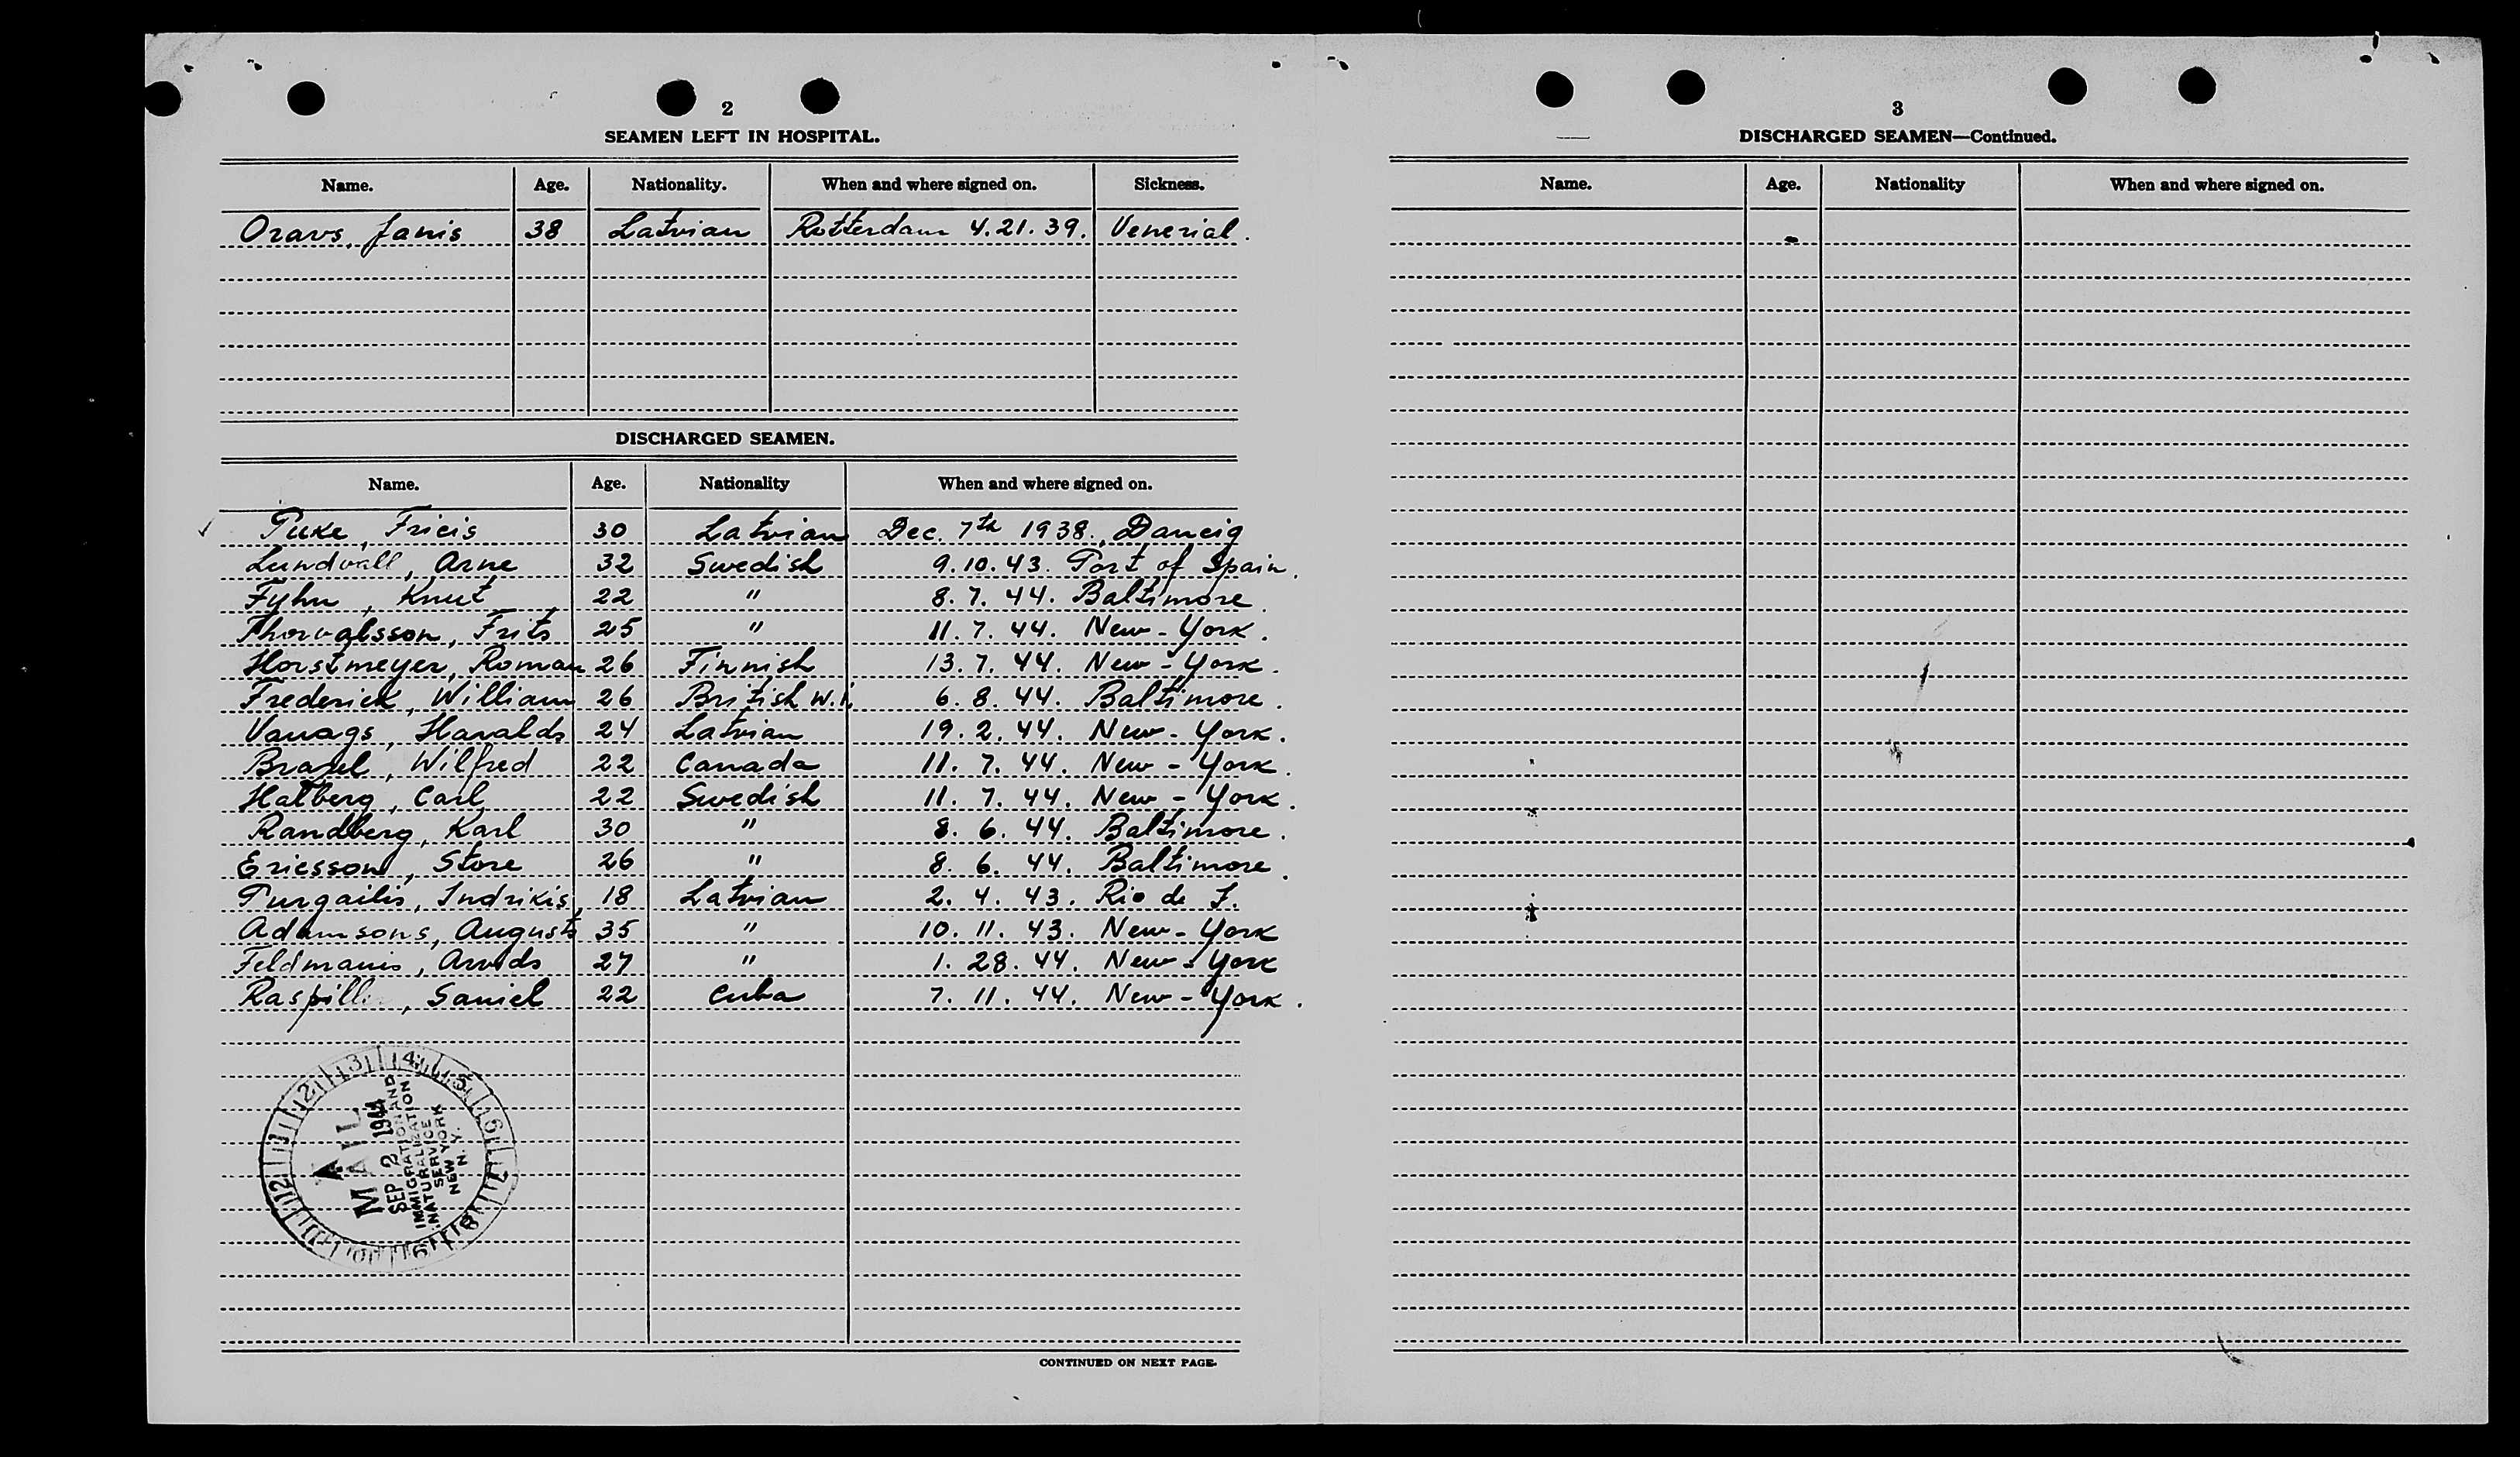 2
SEAMEN LEFT IN HOSPITAL.
Name. Age. Nationality. When and where signed on. Sickness.
Ozavs, Janis 38 Latvian Rotterdam 4.21.39. Venerial.
DISCHARGED SEAMEN.
Name. Age. Nationality When and where signed on.
Puke, Fricis 30 Latvian Dec. 7th 1938., Dancig
Lundvall, Arne 32 Swedish 9.10.43. Port of Spain.
Fyhn, Knut 22 " 8.7.44. Baltimore.
Thorvalsson, Frits 25 " 11.7.44. New-York.
Horstmeyer, Roman 26 Finnish 13.7.44. New-York.
Frederick, William 26 British W.I. 6.8.44. Baltimore.
Vanags, Haralds 24 Latvian 19.2.44. New-York.
Wilfred 22 Canada 11.7.44. New-York.
Halberg, Carl 22 Swedish 11.7.44. New-York.
Randberg, Karl 30 " 8.6.44. Baltimore.
Ericsson, Store 26 " 8.6.44. Baltimore.
Purgailis, Indrikis, 18 Latvian 2.4.43. Rio de J.
Adamsons, Augusts 35 " 10.11.43. New-York
Feldmanis, Arvids 27 " 1.28.44. New-York
Saniel 22 Cuba 7.11.44. New-York.
MAIL
SEP 2 1944
IMMIGRATION AND
NATURALIZATION
SERVICE
NEW YORK
N. Y.
12 1 2 3 4 5 6 7 8 9 10 11
CONTINUED ON NEXT PAGE.
3
DISCHARGED SEAMEN—Continued.
Name. Age. Nationality When and where signed on.